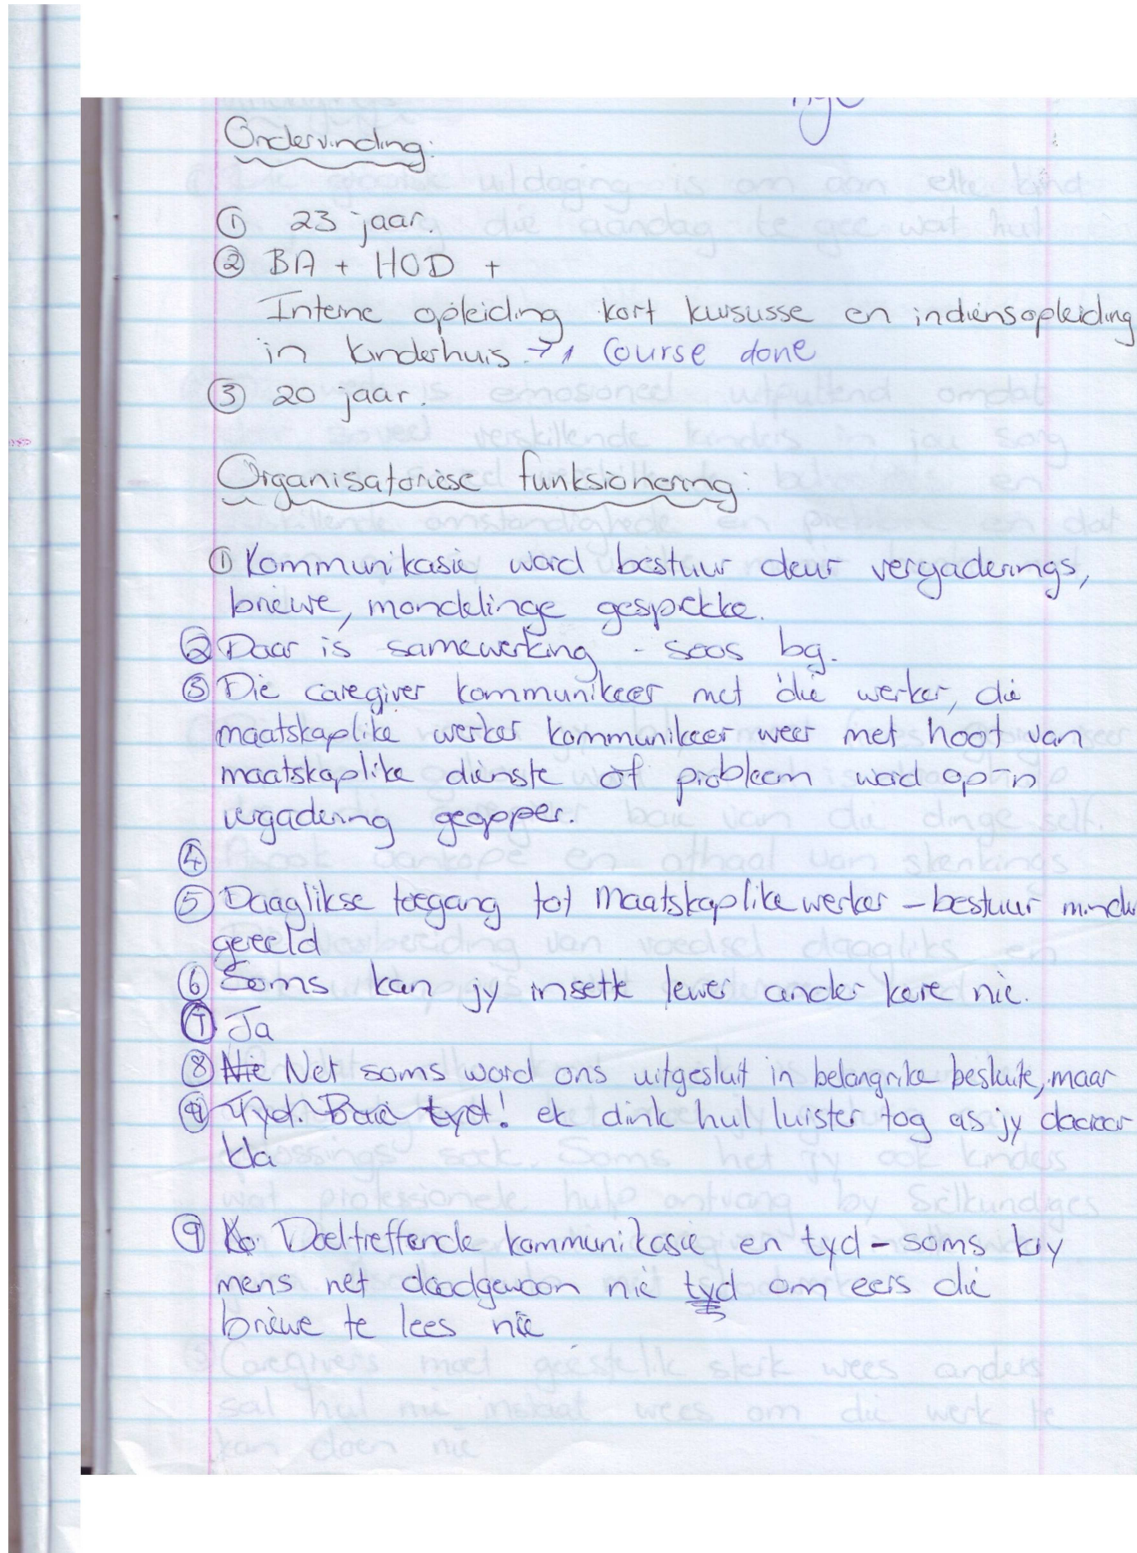 Ondervinding:
① 23 jaar.
② BA + HOD +
Interne opleiding kort kursusse en indiensopleiding
in kinderhuis → 1 Course done
③ 20 jaar.
Organisatoriese funksionering:
① Kommunikasie word bestuur deur vergaderings,
briewe, mondelinge gesprekke.
② Daar is samewerking - soos bg.
③ Die caregiver kommunikeer met die werker, die
maatskaplike werker kommunikeer weer met hoof van
maatskaplike dienste of probleem word op 'n
vergadering geopper.
④
⑤ Daaglikse toegang tot maatskaplike werker – bestuur minder
gereeld
⑥ Soms kan jy insette lewer ander kere nie.
⑦ Ja
⑧ Nie Net soms word ons uitgesluit in belangrike besluite, maar
⑨ Tyd. Baie tyd! ek dink hul luister tog as jy daaroor
kla
⑨ Ko Doeltreffende kommunikasie en tyd – soms kry
mens net doodgewoon nie tyd om eers die
briewe te lees nie